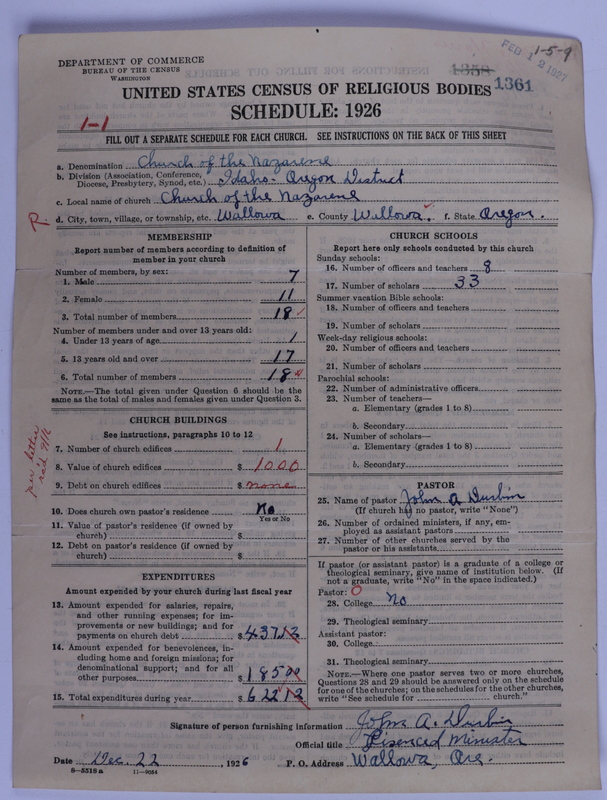 DEPARTMENT OF COMMERCE
BUREAU OF THE CENSUS
WASHINGTON
FEB 12 1927
1-5-9
1358
1361
UNITED STATES CENSUS OF RELIGIOUS BODIES
SCHEDULE: 1926
1-1
FILL OUT A SEPARATE SCHEDULE FOR EACH CHURCH. SEE INSTRUCTIONS ON THE BACK OF THIS SHEET
a. Denomination Church of the Nazarene
b. Division (Association, Conference,
Diocese, Presbytery, Synod, etc.) Idaho-Oregon District
c. Local name of church Church of the Nazarene
R. d. City, town, village, or township, etc. Wallowa e. County Wallowa. f. State Oregon.
MEMBERSHIP
Report number of members according to definition of
member in your church
Number of members, by sex:
1. Male 7
2. Female 11
3. Total number of members 18
Number of members under and over 13 years old:
4. Under 13 years of age 1
5. 13 years old and over 17
6. Total number of members 18
NOTE.—The total given under Question 6 should be the
same as the total of males and females given under Question 3.
CHURCH BUILDINGS
See instructions, paragraphs 10 to 12
per letter
7. Number of church edifices 1
8. Value of church edifices $ 1000
9. Debt on church edifices $ none
10. Does church own pastor's residence No
Yes or No
11. Value of pastor's residence (if owned by
church) $
12. Debt on pastor's residence (if owned by
church) $
EXPENDITURES
Amount expended by your church during last fiscal year
13. Amount expended for salaries, repairs,
and other running expenses; for im-
provements or new buildings; and for
payments on church debt $ 437 12
14. Amount expended for benevolences, in-
cluding home and foreign missions; for
denominational support; and for all
other purposes $ 185 00
15. Total expenditures during year $ 622 12
CHURCH SCHOOLS
Report here only schools conducted by this church
Sunday schools:
16. Number of officers and teachers 8
17. Number of scholars 33
Summer vacation Bible schools:
18. Number of officers and teachers
19. Number of scholars
Week-day religious schools:
20. Number of officers and teachers
21. Number of scholars
Parochial schools:
22. Number of administrative officers
23. Number of teachers—
a. Elementary (grades 1 to 8)
b. Secondary
24. Number of scholars—
a. Elementary (grades 1 to 8)
b. Secondary
PASTOR
25. Name of pastor John A Durbin
(If church has no pastor, write "None")
26. Number of ordained ministers, if any, em-
ployed as assistant pastors
27. Number of other churches served by the
pastor or his assistants
If pastor (or assistant pastor) is a graduate of a college or
theological seminary, give name of institution below. (If
not a graduate, write "No" in the space indicated.)
Pastor: 0
28. College No
29. Theological seminary
Assistant pastor:
30. College
31. Theological seminary
NOTE.—Where one pastor serves two or more churches,
Questions 28 and 29 should be answered only on the schedule
for one of the churches; on the schedules for the other churches,
write "See schedule for church."
Signature of person furnishing information John A. Durbin
Official title Lisenced Minister
Date Dec. 22, 1926 P. O. Address Wallowa, Ore.
8-5518 a 11-9054